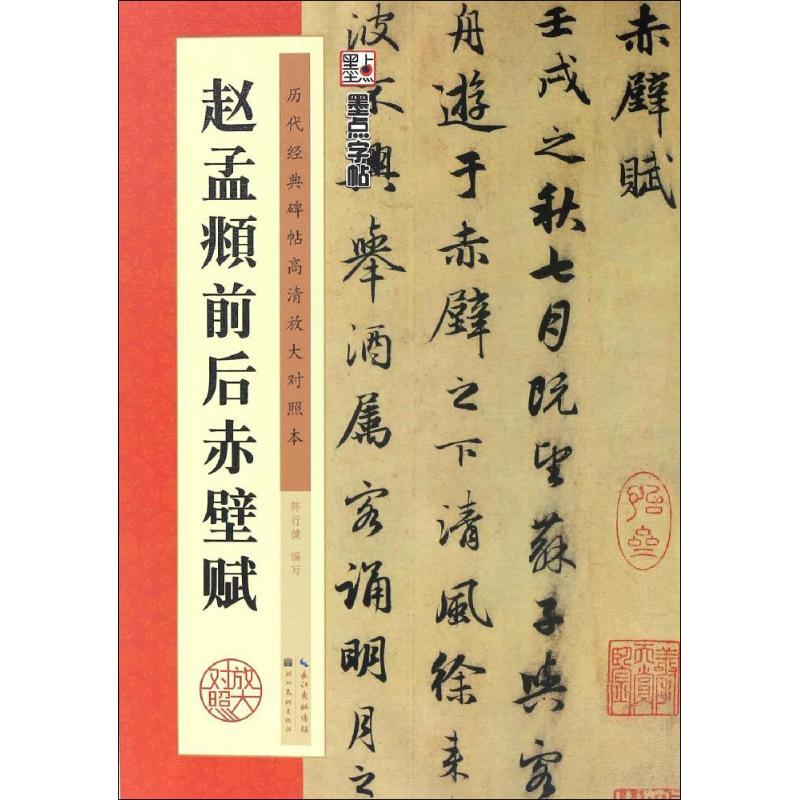 赤壁賦
壬戌之秋七月既望蘇子與客
舟遊于赤壁之下清風徐来
波不興舉酒属客誦明月之
墨点
墨点字帖
历代经典碑帖高清放大对照本
陈行健 编写
长江出版传媒
湖北美术出版社
赵孟頫前后赤壁赋
放大
对照